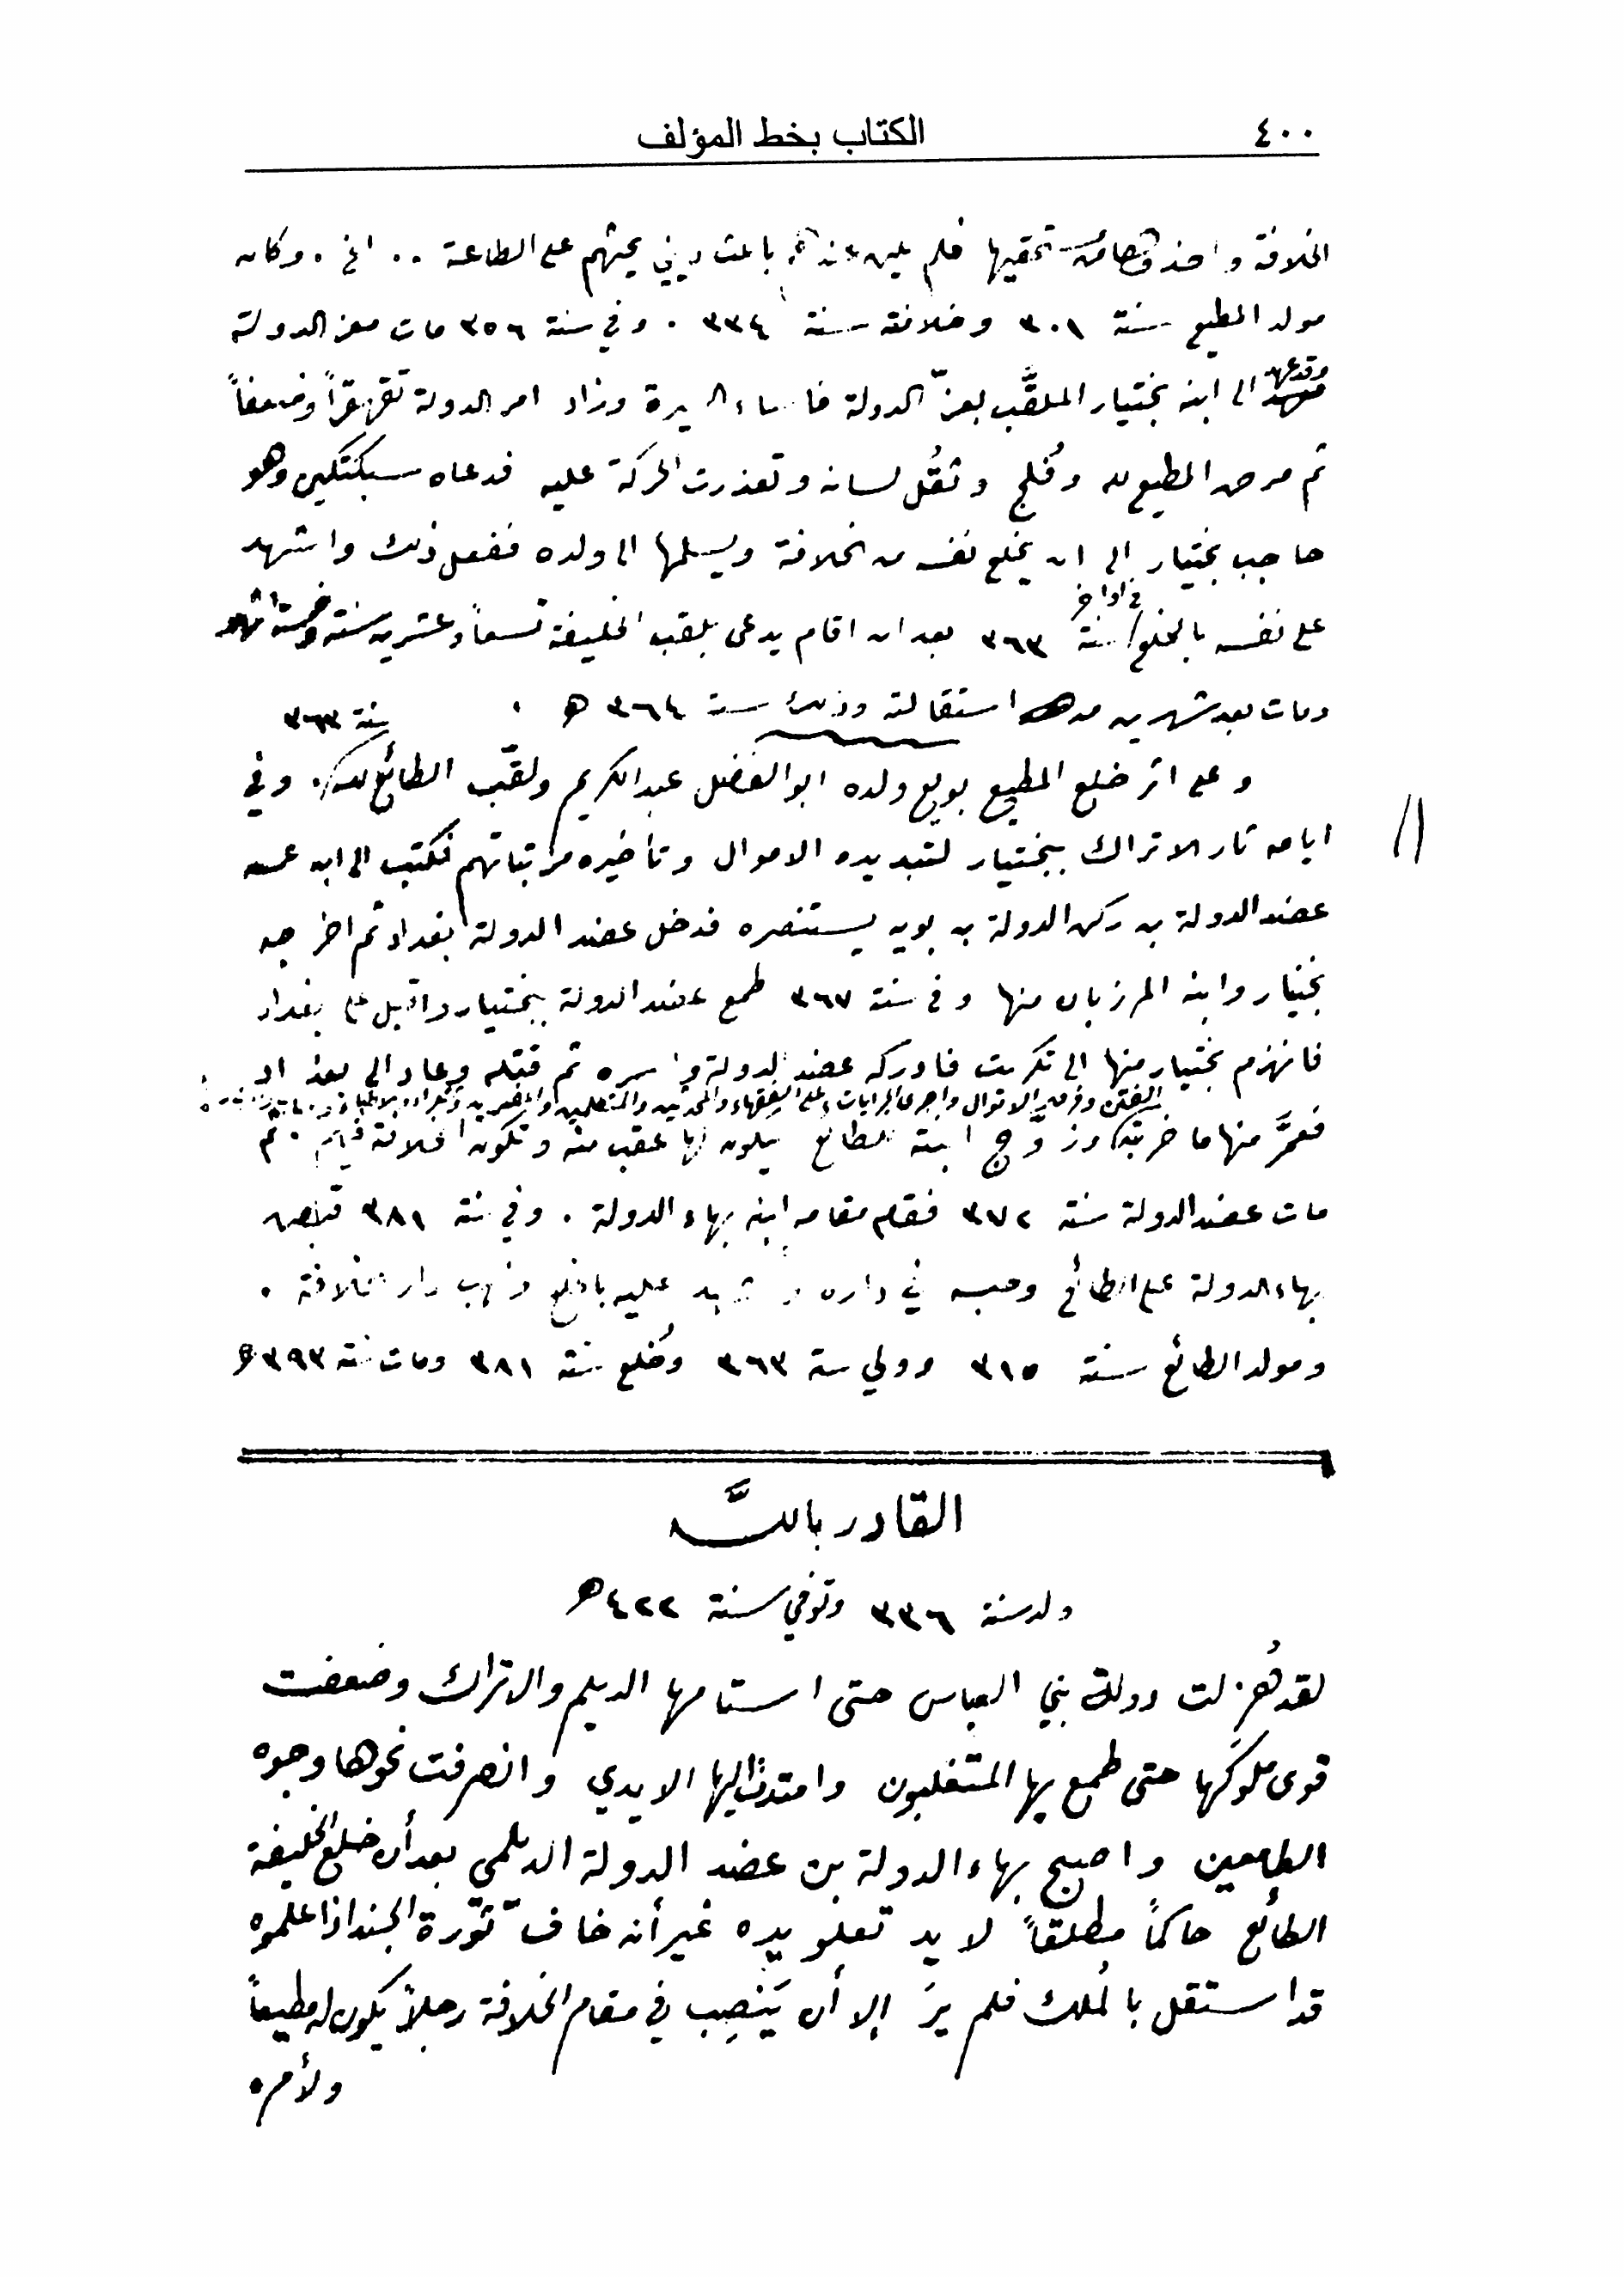 ٤٠٠
الكتاب بخط المؤلف
الخلافة واخذوها من مستحقيها فلم يكن عندهم باعث ديني يحثهم على الطاعة .. الخ . وكان
مولد المطيع سنة ٣٠١ وخلافته سنة ٣٣٤ . وفي سنة ٣٥٦ مات معز الدولة
وقد عهد
الى ابنه بختيار الملقَّب بعزّ الدولة فاساء السيرة وزاد امر الدولة تقهقراً وضعفاً
ثم مرض المطيع لله وفُلج وثقُل لسانه وتعذرت الحركة عليه فدعاه سبكتكين وهو
حاجب بختيار الى ان يخلع نفسه من الخلافة ويسلمها الى ولده ففعل ذلك واشهد
في اواخر
على نفسه بالخلع سنة ٣٦٣ بعد ان اقام يدعى بلقب الخليفة تسعاً وعشرين سنة وخمسة اشهر
ومات بعد شهرين من استقالته وذلك سنة ٣٦٤ هـ .
سنة ٣٦٣
وعلى اثر خلع المطيع بويع ولده ابو الفضل عبد الكريم ولقّب الطائع لله . وفي
ايامه ثار الاتراك ببختيار لتبديده الاموال وتأخيره مرتباتهم فكتب الى ابن عمه
عضد الدولة بن ركن الدولة بن بويه يستنصره فدخل عضد الدولة بغداد ثم اخرج
بختيار وابنه المرزبان منها وفي سنة ٣٦٧ طمع عضد الدولة ببختيار واقبل على بغداد
فانهزم بختيار منها الى تكريت فادركه عضد الدولة واسره ثم قتله وعاد الى بغداد
الفتن وفرق الاموال واجرى الجرايات على الفقهاء والمحدثين والمتكلمين والمفسرين والشعراء والاطباء
فعمَّر منها ما خربته وزوَّج ابنته للطائع ليكون لها عقب منه وتكون الخلافة فيهم . ثم
مات عضد الدولة سنة ٣٧٢ فقام مقامه ابنه بهاء الدولة . وفي سنة ٣٨١ قبض
بهاء الدولة على الطائع وحبسه في داره واشهد عليه بالخلع ونهب دار الخلافة .
ومولد الطائع سنة ٣١٥ وولي سنة ٣٦٣ وخُلع سنة ٣٨١ ومات سنة ٣٩٣ هـ
القادر باللّه
ولد سنة ٣٣٦ وتوفي سنة ٤٢٢ هـ
لقد هُزلت دولة بني العباس حتى استامها الديلم والاتراك وضعفت
قوى ملوكها حتى طمع بها المتغلبون وامتدت اليها الايدي وانصرفت نحوها وجوه
الطامعين واصبح بهاء الدولة بن عضد الدولة الديلمي بعد أن خلع الخليفة
الطائع حاكماً مطلقاً لا يد تعلو يده غير أنه خاف ثورة الجند اذا علموه
قد استقل بالمُلك فلم يرَ إلا أن يَنصِب في مقام الخلافة رجلاً يكون له مطيعاً
ولأمره